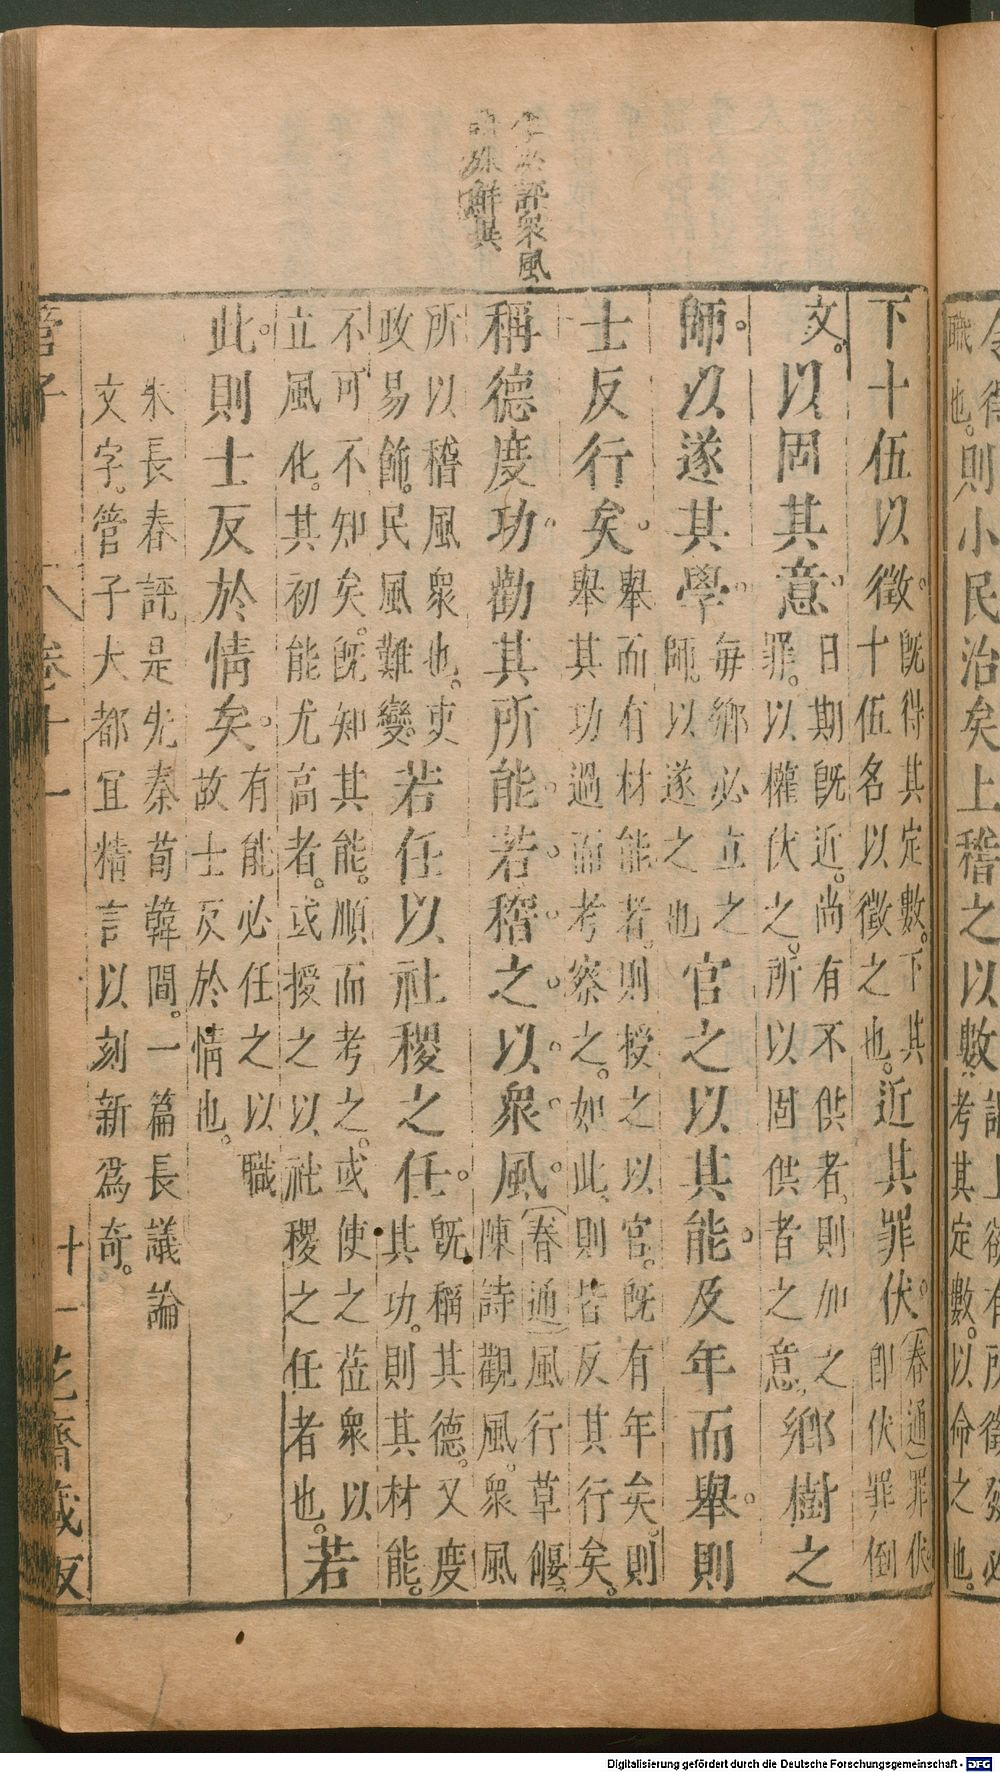 令徵
職也。
則小民治矣上稽之以數
謂上欲有所徵發必
考其定數。以命之也。
評衆風
殊鮮異
下十伍以徵。
既得其定數。下其
十伍名以徵之也。
近其罪伏。
(春通)罪伏
卽伏罪倒
文。以固其意。
日期既近。尚有不供者。則加之
罪。以權伏之。所以固供者之意。
鄉樹之
師。以遂其學。
每鄉必立之
師。以遂之也
官之以其能。及年而舉。則
士反行矣。
舉而有材能者。則授之以官。既有年矣。則
舉其功過而考察之。如此。則皆反其行矣。
稱德度功。勸其所能。若稽之以衆風。
(春通)風行草偃
陳詩觀風。衆風
所以稽風衆也。吏
政易飾。民風難變。
若任以社稷之任。
既稱其德。又度
其功。則其材能。
不可不知矣。既知其能。順而考之。或使之莅衆以
立風化。其初能尤高者。或授之以社稷之任者也。
若
此。則士反於情矣。
有能必任之以職
故士反於情也。
朱長春評是先秦荀韓間。一篇長議論
文字。管子大都宜精言以刻新爲奇。
管子 卷十一 十一 花齋藏板
Digitalisierung gefördert durch die Deutsche Forschungsgemeinschaft - DFG